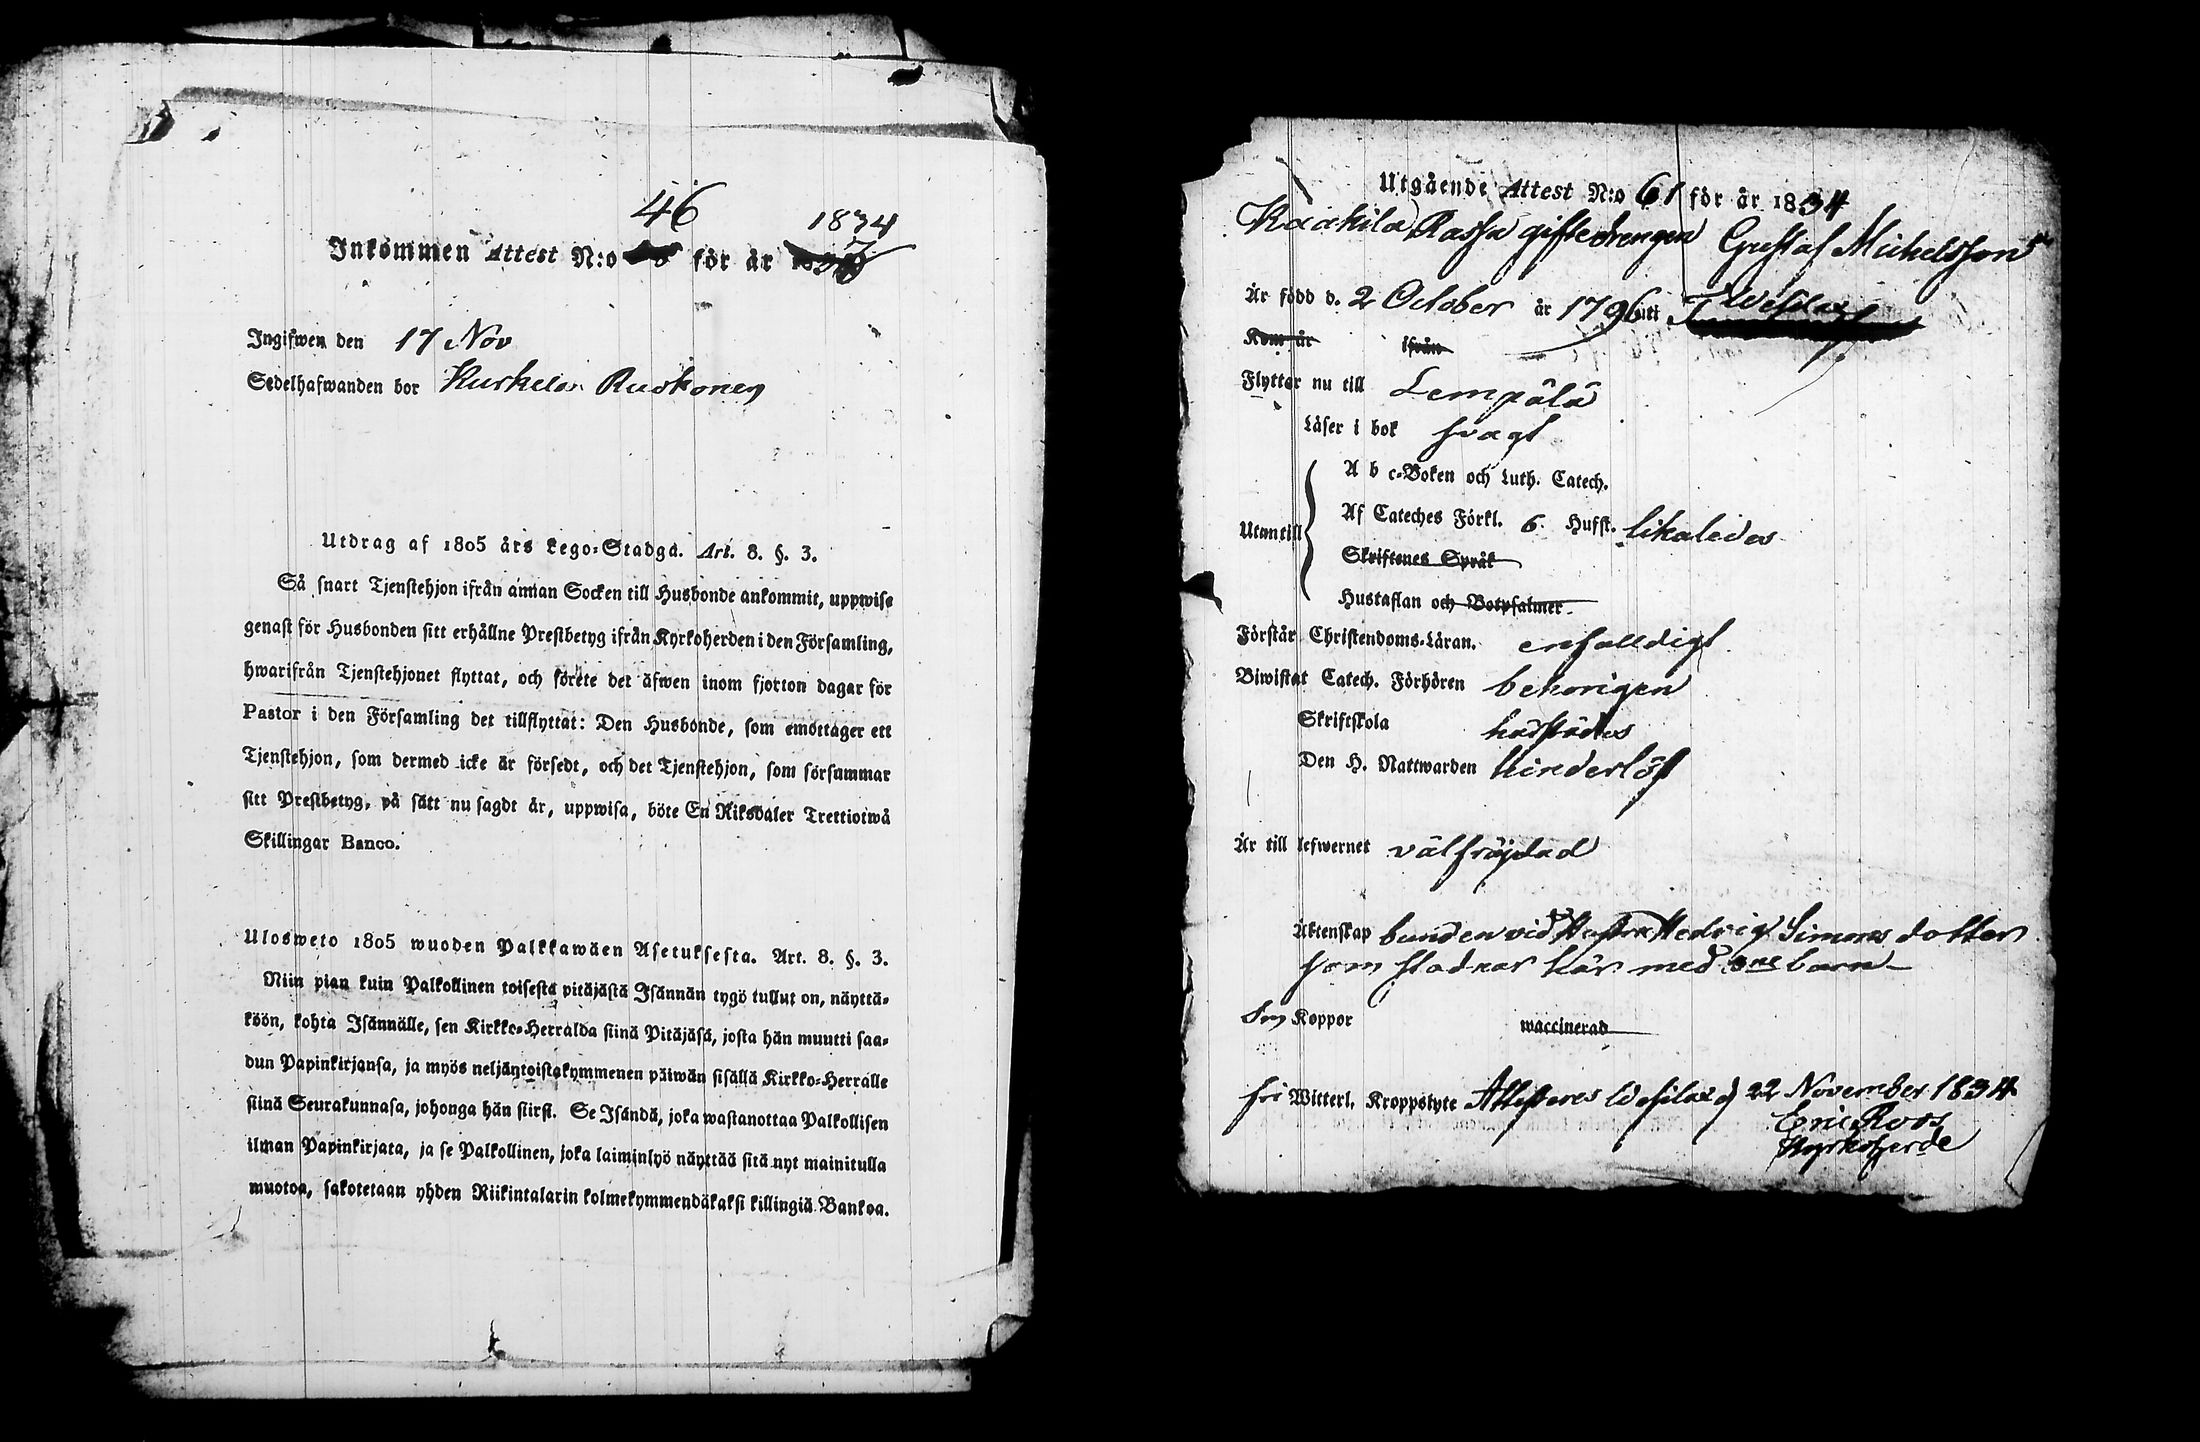 46
1834
Inkommen Attest N:o för år
Ingifwen den 17 Nov
Sedelhafwanden bor Kurkela Ruokonen
Utdrag af 1805 års Lego-Stadga. Art. 8. §. 3.
Så snart Tjenstehjon ifrån annan Socken till Husbonde ankommit, uppwise
genast för Husbonden sitt erhållne Prestbetyg ifrån Kyrkoherden i den Församling,
hwarifrån Tjenstehjonet flyttat, och förete det äfwen inom fjorton dagar för
Pastor i den Församling det tillflyttat: Den Husbonde, som emottager ett
Tjenstehjon, som dermed icke är försedt, och det Tjenstehjon, som försummar
sitt Prestbetyg, på sätt nu sagdt är, uppwisa, böte En Riksdaler Trettiotwå
Skillingar Banco.
Ulosweto 1805 wuoden Palkkawäen Asetuksesta. Art. 8. §. 3.
Niin pian kuin Palkollinen toisesta pitäjästä Isännän tygö tullut on, näyttä-
köön, kohta Isännälle, sen Kirkko-Herralda siinä Pitäjäsä, josta hän muutti saa-
dun Papinkirjansa, ja myös neljäntoistakymmenen päiwän sisällä Kirkko-Herralle
siinä Seurakunnasa, johonga hän siirst. Se Isändä, joka wastanottaa Palkollisen
ilman Papinkirjata, ja se Palkollinen, joka laiminlyö näyttää sitä nyt mainitulla
muotoa, sakotetaan yhden Riikintalarin kolmekymmendäkaksi killingiä Bankoa.
Utgående Attest N:o 61 för år 1834
Kaakila Rassa gifte drengen Gustaf Michelsson
Är född d. 2 October år 1796 uti Wesilax
Kom år ifrån
Flyttar nu till Lempälä
Läser i bok svagt
A b c-Boken och Luth. Catech.
Utantill Af Cateches Förkl. 6. Hufst. likaledes
Skriftenes Språk
Hustaflan och Botpsalmer.
Förstår Christendoms-Läran. enfalldigt
Biwistat Catech. Förhören behörigen
Skriftskola härstädes
Den H. Nattwarden hinderlöst
Är till lefwernet välfrejdad
Äktenskap bunden vid Hustru Hedvig Simonsdotter
som stadnar här med barn
Koppor waccinerad
fri Witterl. Kroppslyte Attesteres Wesilax d 22 November 1834
Eric Roos
Kyrkoherde